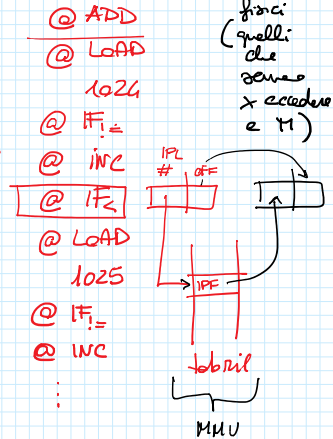 @ ADD
@ LOAD
1024
@ IF!=
@ INC
@ IF<
@ LOAD
1025
@ IF!=
@ INC
⋮
fisici
(quelli
che
servono
x accedere
a M)
IPL
# OFF
IPF
tabril
MMU